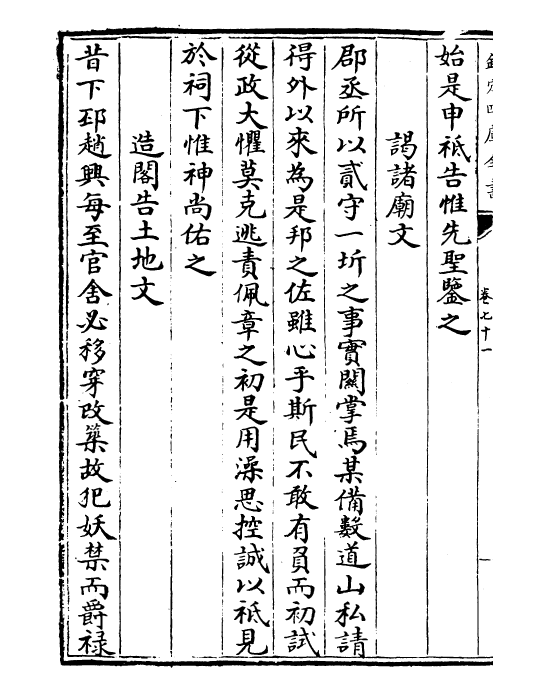 欽定四庫全書
卷七十一
一
始是申祗告惟先聖鑒之
謁諸廟文
郡丞所以貳守一圻之事實關掌焉某備數道山私請
得外以來為是邦之佐雖心乎斯民不敢有負而初試
從政大懼莫克逃責佩章之初是用澡思控誠以祗見
於祠下惟神尚佑之
造閣告土地文
昔下邳趙興每至官舍必移穿改築故犯妖禁而爵祿